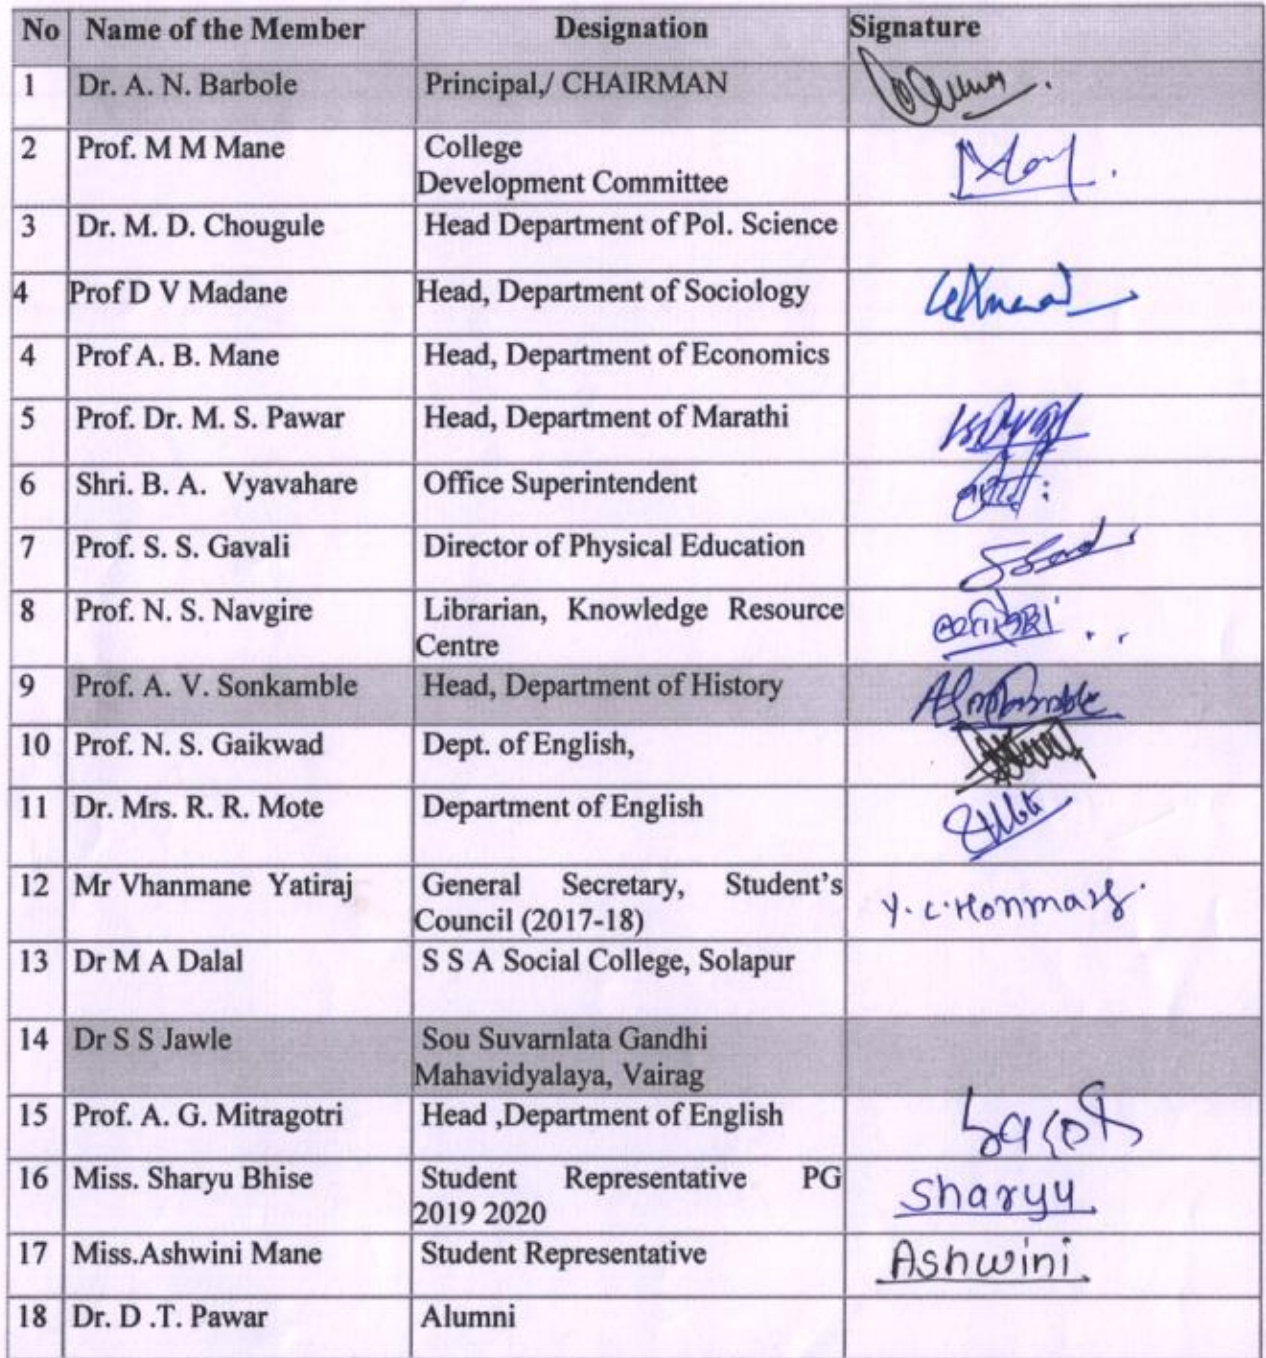 No Name of the Member Designation Signature
1 Dr. A. N. Barbole Principal,/ CHAIRMAN
2 Prof. M M Mane College
Development Committee
3 Dr. M. D. Chougule Head Department of Pol. Science
4 Prof D V Madane Head, Department of Sociology
4 Prof A. B. Mane Head, Department of Economics
5 Prof. Dr. M. S. Pawar Head, Department of Marathi
6 Shri. B. A. Vyavahare Office Superintendent
7 Prof. S. S. Gavali Director of Physical Education
8 Prof. N. S. Navgire Librarian, Knowledge Resource
Centre
9 Prof. A. V. Sonkamble Head, Department of History
10 Prof. N. S. Gaikwad Dept. of English,
11 Dr. Mrs. R. R. Mote Department of English
12 Mr Vhanmane Yatiraj General Secretary, Student's
Council (2017-18)
13 Dr M A Dalal S S A Social College, Solapur
14 Dr S S Jawle Sou Suvarnlata Gandhi
Mahavidyalaya, Vairag
15 Prof. A. G. Mitragotri Head ,Department of English
16 Miss. Sharyu Bhise Student Representative PG Sharyu
2019 2020
17 Miss.Ashwini Mane Student Representative Ashwini
18 Dr. D .T. Pawar Alumni